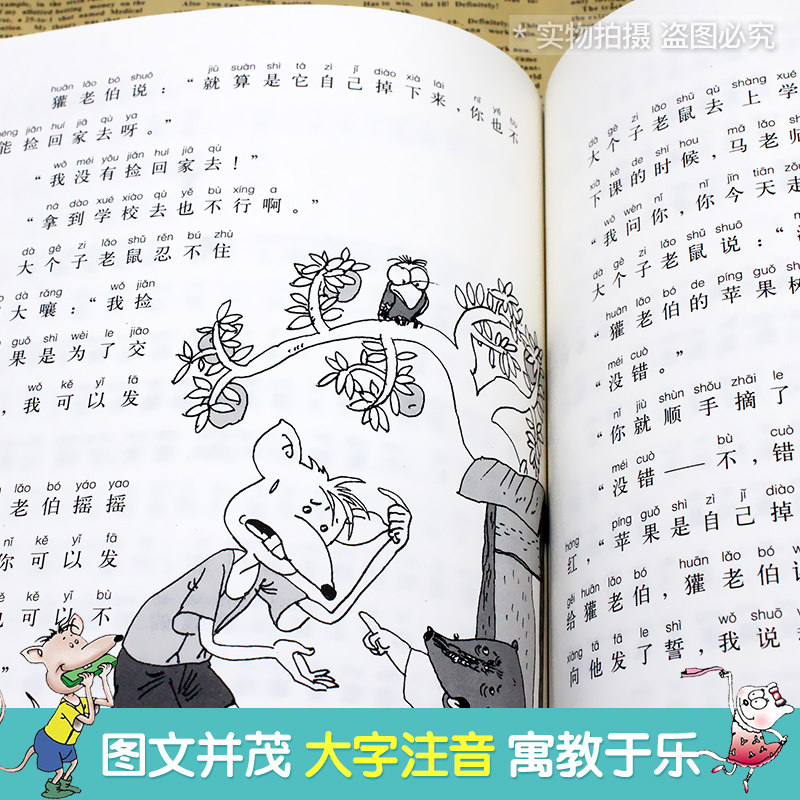 * 实物拍摄 盗图必究
huān lǎo bó shuō jiù suàn shì tā zì jǐ diào xià lái nǐ yě bù
獾老伯说：“就算是它自己掉下来，你也不
néng jiǎn huí jiā qù ya
能捡回家去呀。”
wǒ méi yǒu jiǎn huí jiā qù
“我没有捡回家去！”
ná dào xué xiào qù yě bù xíng a
“拿到学校去也不行啊。”
dà gè zi lǎo shǔ rěn bú zhù
大个子老鼠忍不住
dà rǎng wǒ jiǎn
大嚷：“我捡
guǒ shì wèi le jiāo
果是为了交
wǒ kě yǐ fā
，我可以发
lǎo bó yáo yao
老伯摇摇
nǐ kě yǐ fā
你可以发
kě yǐ bù
也可以不
”
dà gè zi lǎo shǔ qù shàng xué
大个子老鼠去上学
xià kè de shí hou mǎ lǎo shī
下课的时候，马老师
wǒ wèn nǐ nǐ jīn tiān zǒu
“我问你，你今天走
dà gè zi lǎo shǔ shuō
大个子老鼠说：“
huān lǎo bó de píng guǒ shù
“獾老伯的苹果树
méi cuò
“没错。”
nǐ jiù shùn shǒu zhāi le
“你就顺手摘了
méi cuò bù cuò
“没错——不，错
hóng píng guǒ shì zì jǐ diào
红，“苹果是自己掉
gěi huān lǎo bó huān lǎo bó
给獾老伯，獾老伯说
xiàng tā fā le shì wǒ shuō
向他发了誓，我说
图文并茂 大字注音 寓教于乐